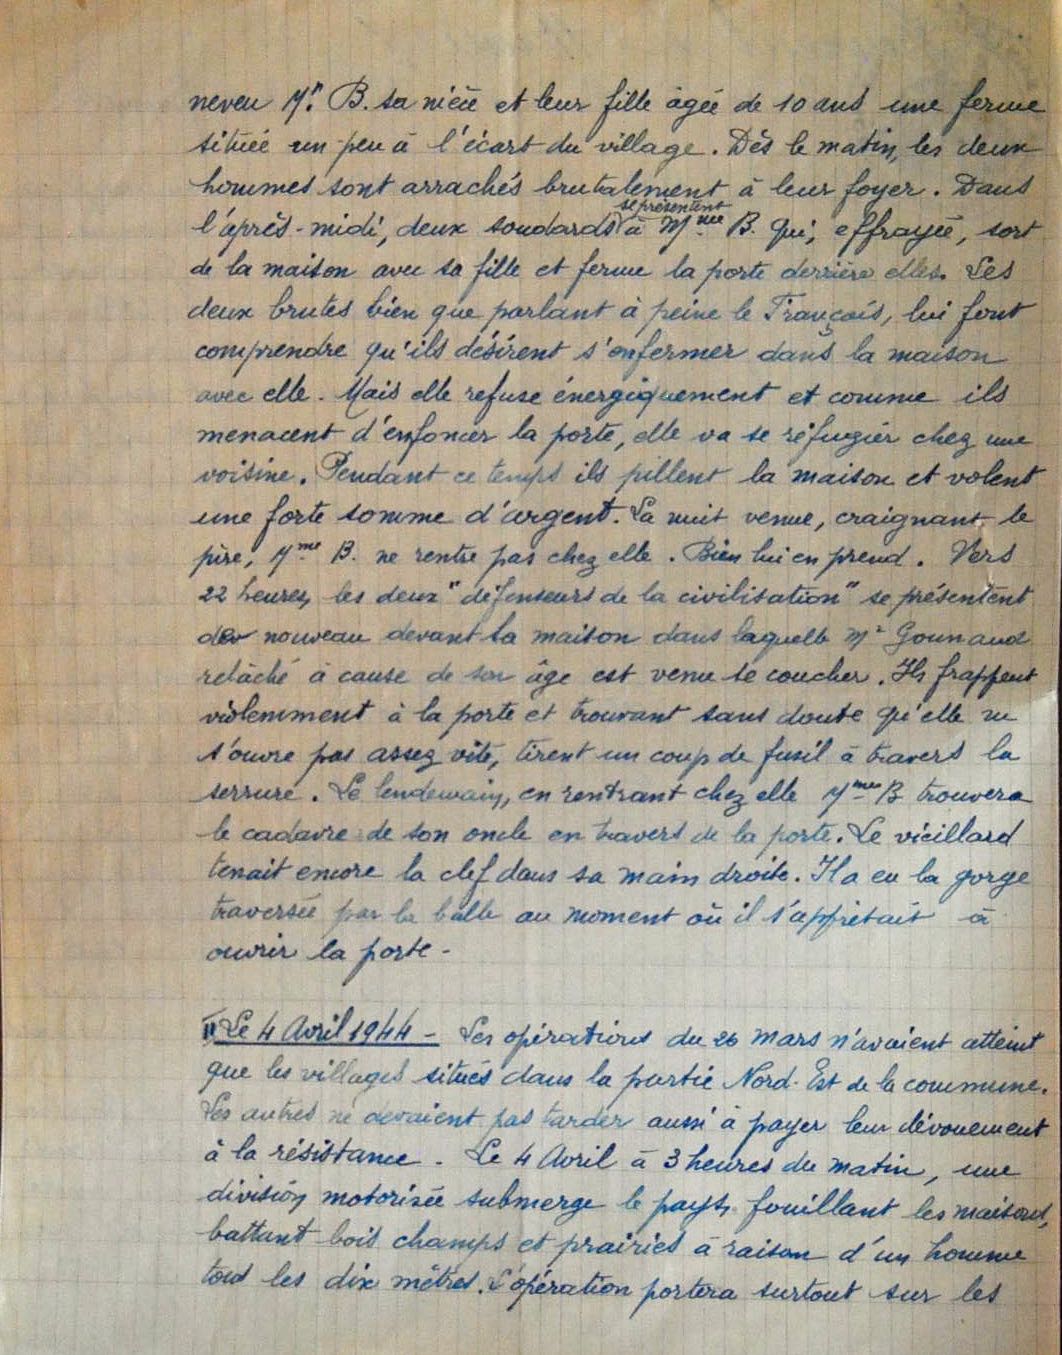 neveu Mr B. sa nièce et leur fille âgée de 10 ans une ferme
située un peu à l'écart du village. Dès le matin, les deux
hommes sont arrachés brutalement à leur foyer. Dans
se présentent
l'après-midi, deux soudards à Mme B. qui, effrayée, sort
de la maison avec sa fille et ferme la porte derrière elles. Les
deux brutes bien que parlant à peine le Français, lui font
comprendre qu'ils désirent s'enfermer dans la maison
avec elle. Mais elle refuse énergiquement et comme ils
menacent d'enfoncer la porte, elle va se réfugier chez une
voisine. Pendant ce temps ils pillent la maison et volent
une forte somme d'argent. La nuit venue, craignant le
pire, Mme B. ne rentre pas chez elle. Bien lui en prend. Vers
22 heures, les deux "défenseurs de la civilisation" se présentent
de nouveau devant la maison dans laquelle Mr Gounaud
relâché à cause de son âge est venu se coucher. Ils frappent
violemment à la porte et trouvant sans doute qu'elle ne
s'ouvre pas assez vite, tirent un coup de fusil à travers la
serrure. Le lendemain, en rentrant chez elle Mme B trouvera
le cadavre de son oncle en travers de la porte. Le vieillard
tenait encore la clef dans sa main droite. Il a eu la gorge
traversée par la balle au moment où il s'apprêtait à
ouvrir la porte -
II Le 4 Avril 1944 - Les opérations du 26 mars n'avaient atteint
que les villages situés dans la partie Nord-Est de la commune.
Les autres ne devaient pas tarder aussi à payer leur dévouement
à la résistance - Le 4 Avril à 3 heures du matin, une
division motorisée submerge le pays, fouillant les maisons,
battant bois champs et prairies à raison d'un homme
tous les dix mètres. L'opération portera surtout sur les